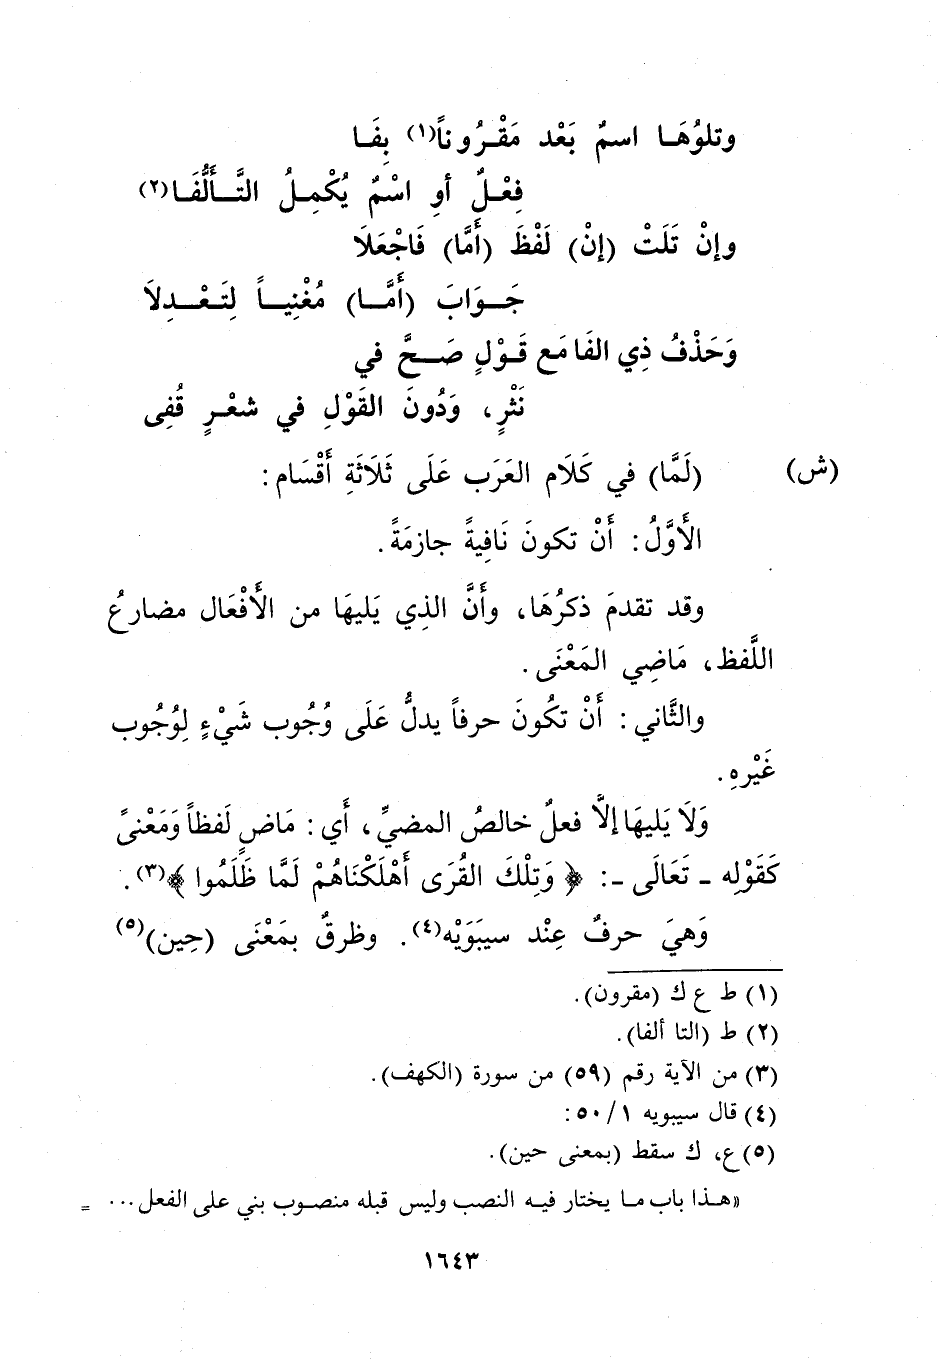 وتلوُهَا اسمٌ بَعْد مَقْرُوناً(١) بِفَا
فِعْلٌ أوِ اسْمٌ يُكْمِلُ التَّأَلُّفَا(٢)
وإنْ تَلَتْ (إنْ) لَفْظَ (أَمَّا) فَاجْعَلَا
جَوَابَ (أَمَّا) مُغْنِياً لِتَعْدِلاَ
وَحَذْفُ ذِي الفَا مَع قَوْلٍ صَحَّ في
نَثْرٍ، وَدُونَ القَوْلِ في شعْرٍ قُفِى
(ش) (لَمَّا) في كَلَام العَرَب عَلَى ثَلَاثَةِ أَقْسَام:
الأَوَّلُ: أَنْ تكونَ نَافِيةً جازمَةً.
وقد تقدمَ ذكرُهَا، وأَنَّ الذي يَليهَا من الأَفْعَال مضارعُ
اللَّفظ، مَاضِي المَعْنَى.
والثَّاني: أَنْ تكُونَ حرفاً يدلُّ عَلَى وُجُوب شَيْءٍ لِوُجُوب
غَيْرهِ.
وَلَا يَليهَا إلَّا فعلٌ خالصُ المضيِّ، أَي: مَاضٍ لَفظاً وَمَعْنىً
كَقَوْلِه - تَعَالَى -: ﴿وَتِلْكَ القُرَى أَهْلَكْنَاهُمْ لَمَّا ظَلَمُوا﴾(٣).
وَهيَ حرفٌ عِنْد سيبَوَيْه(٤). وظرفٌ بمَعْنَى (حِين)(٥)
(١) ط ع ك (مقرون).
(٢) ط (التا ألفا).
(٣) من الآية رقم (٥٩) من سورة (الكهف).
(٤) قال سيبويه ١/ ٥٠:
(٥) ع، ك سقط (بمعنى حين).
«هذا باب ما يختار فيه النصب وليس قبله منصوب بني على الفعل... =
١٦٤٣